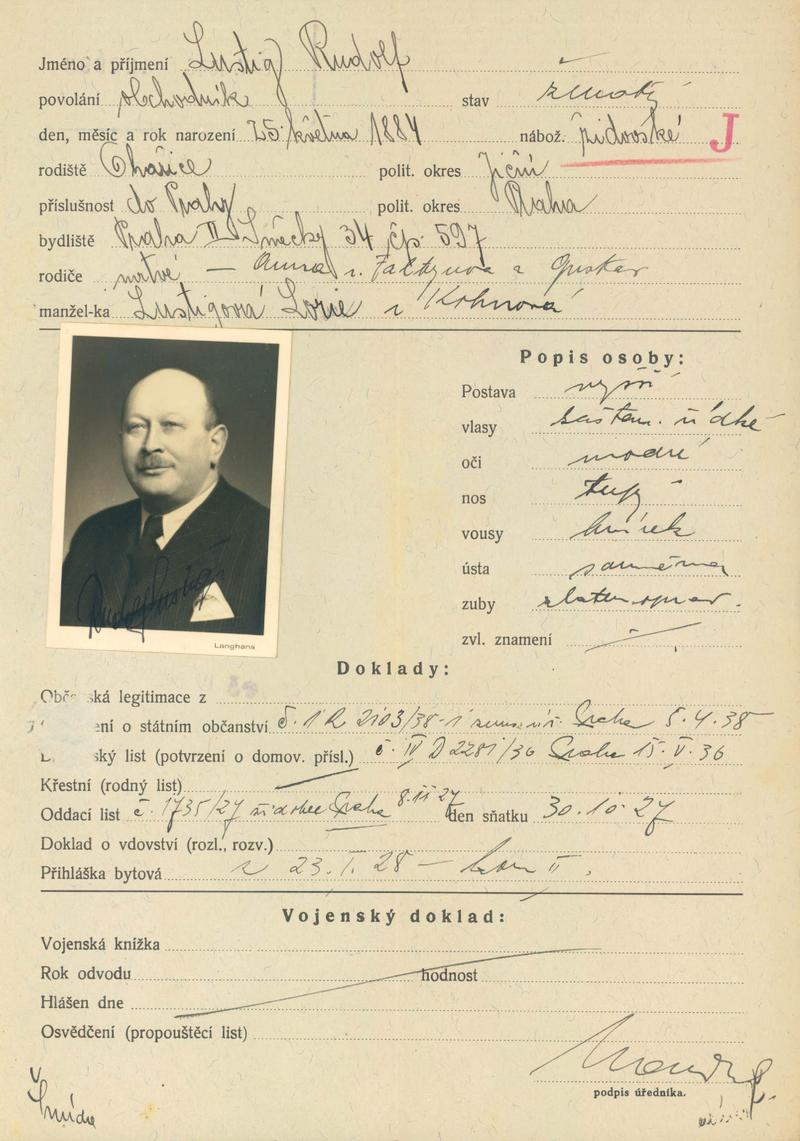 Jméno a příjmení Lustig Rudolf
povolání obchodník stav ženatý
den, měsíc a rok narození 25. května 1884 nábož. židovské J
rodiště polit. okres Jičín
příslušnost do Prahy polit. okres Praha
bydliště Praha II Smečky 34 čp. 597
rodiče mrtvé — Anna r. a Gustav
manžel-ka Lustigová r Kohnová
Popis osoby:
Postava vyšší
vlasy kaštan. řídké
oči modré
nos tupý
vousy knírek
ústa souměrná
zuby zlatem oprav.
zvl. znamení
Rudolf Lustig
Langhans
Doklady:
Obč ská legitimace z
ení o státním občanství č. 1 R 2103/38-1 Praha 5.4.38
ský list (potvrzení o domov. přísl.) č. IV D 2281/36 Praha 15.V.36
Křestní (rodný list)
Oddací list č. 1735/27 žid obec Praha 8.11 27 den sňatku 30.10.27
Doklad o vdovství (rozl., rozv.)
Přihláška bytová z 23.I.28 — kom II.
Vojenský doklad:
Vojenská knížka
Rok odvodu hodnost
Hlášen dne
Osvědčení (propouštěcí list)
podpis úředníka.